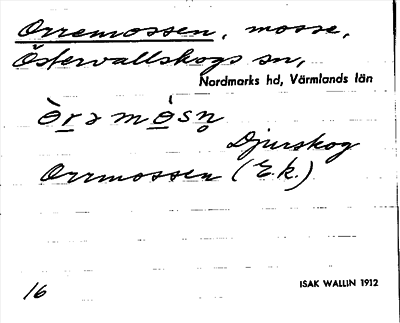 Orremossen, mosse,
Östervallskogs sn,
Nordmarks hd, Värmlands län
Djurskog
Orrmossen (E.k.)
16
ISAK WALLIN 1912